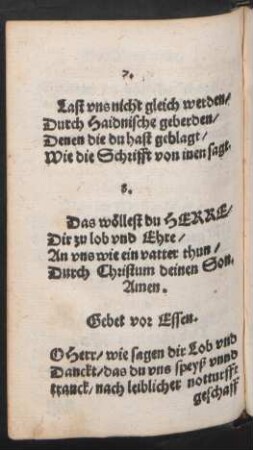 7.
Last vns nicht gleich werden/
Durch Haidnische geberden/
Denen die du hast geblagt/
Wie die Schrifft von inen sagt.
8.
Das wöllest du HERRE/
Dir zu lob vnd Ehre/
An vns wie ein vatter thun/
Durch Christum deinen Son.
Amen.
Gebet vor Essen.
O Herr/ wie sagen dir Lob vnd
Danckt/ das du vns speyß vnnd
tranck/ nach leiblicher notturfft
geschaff